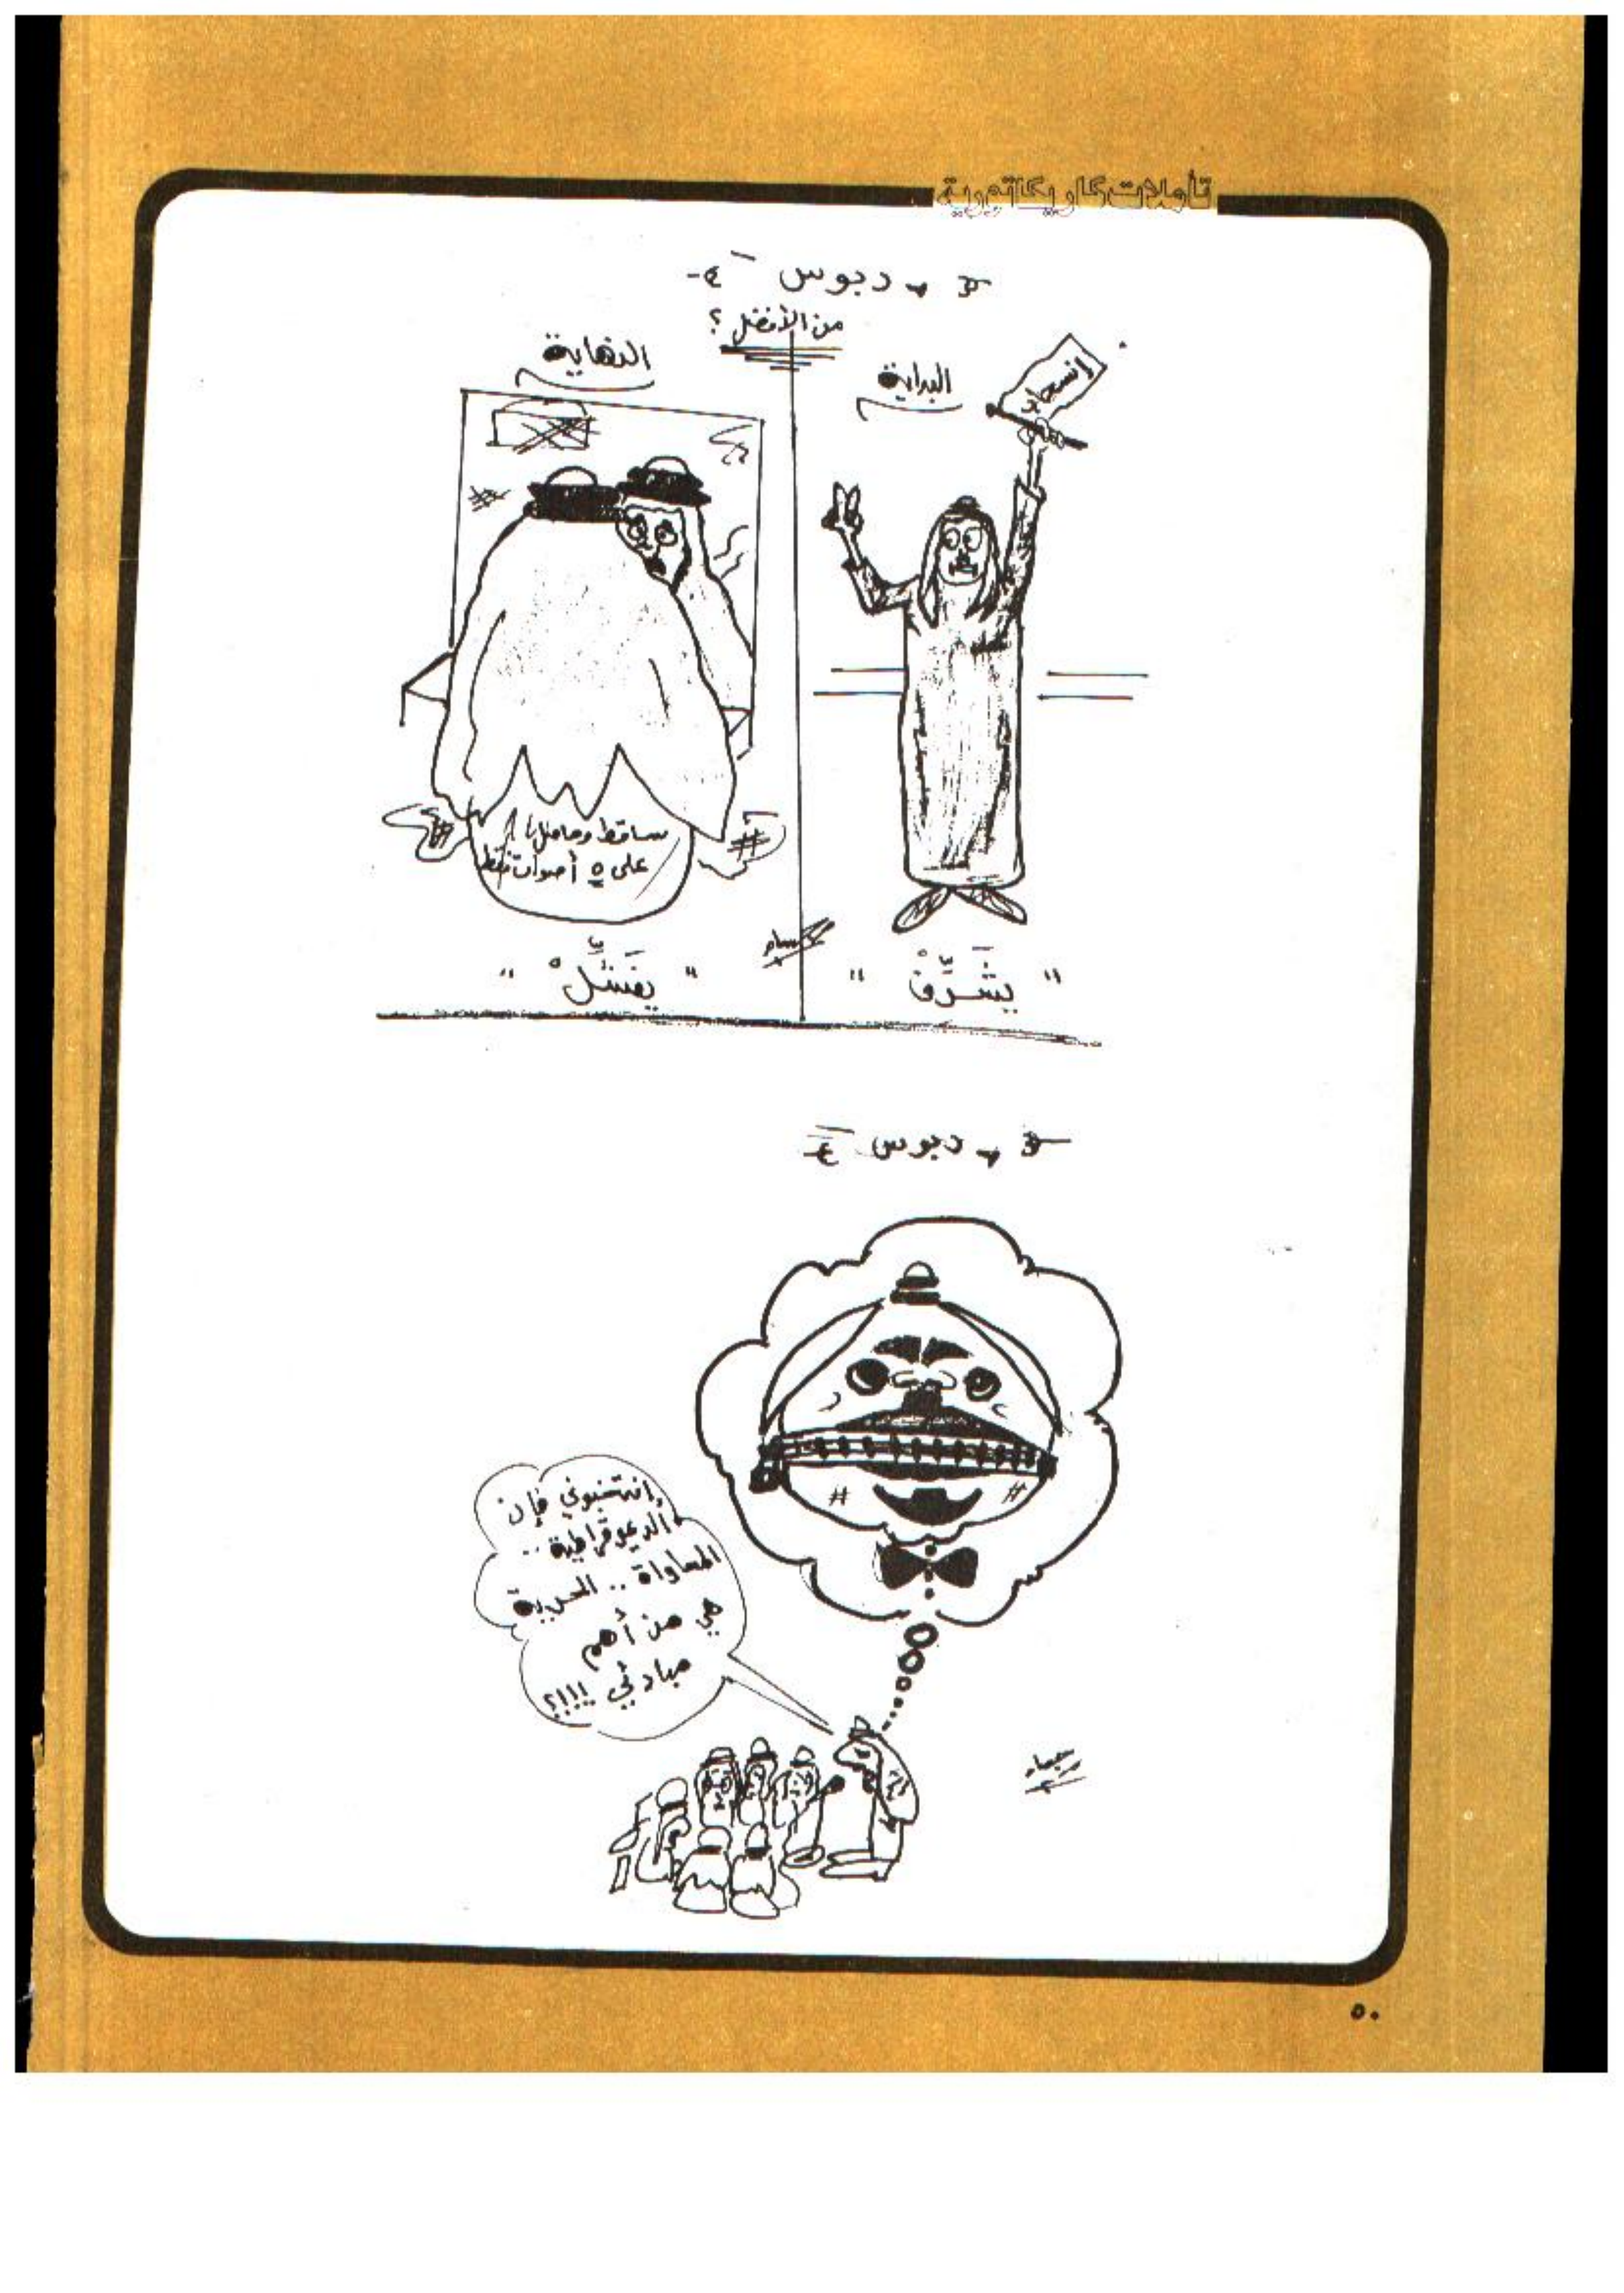 تأملات كاريكاتورية
دبوس
من الأفضل؟
البداية
النهاية
ساقط وحاصل
على ٥ أصوات فقط
" يشَرِّفْ "
" يفَشِّلْ "
دبوس
إنتخبوني فإن
الديموقراطية ..
المساواة .. الحرية
هي من أهم
مبادئي !!!؟
٥٠